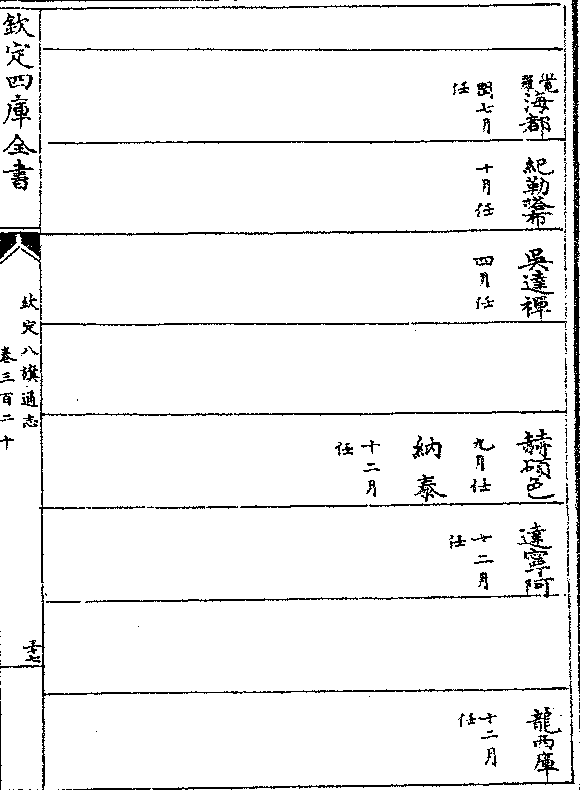 覺羅海都
閏七月
任
紀勒塔布
十月任
吳達禪
四月任
赫碩色
九月任
納泰
十二月
任
達寧阿
十二月
任
龍西庫
十二月
任
欽定四庫全書
欽定八旗通志
卷三百二十